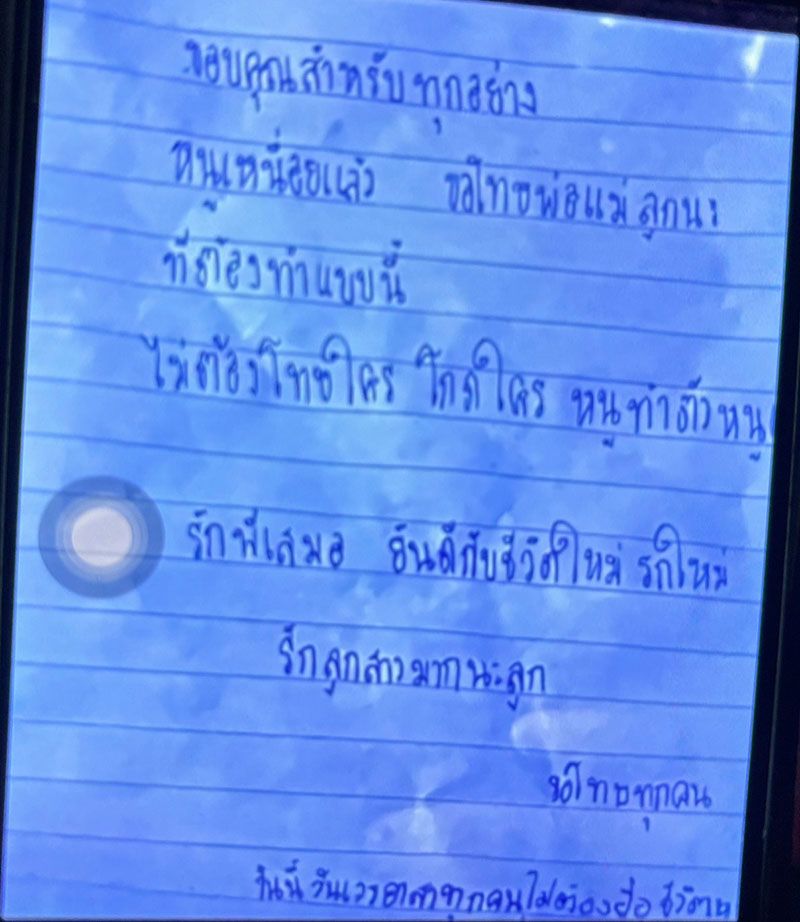 ขอบคุณสำหรับทุกอย่าง
หนูเหนื่อยแล้ว ขอโทษพ่อแม่ ลูกนะ
ที่ต้องทำแบบนี้
ไม่ต้องโทษใคร โกรธใคร หนูทำตัวหนู
รักพี่เสมอ ยินดีกับชีวิตใหม่ รักใหม่
รักลูกสาวมากนะลูก
ขอโทษทุกคน
วันนี้ ทุกคนไม่ต้อง